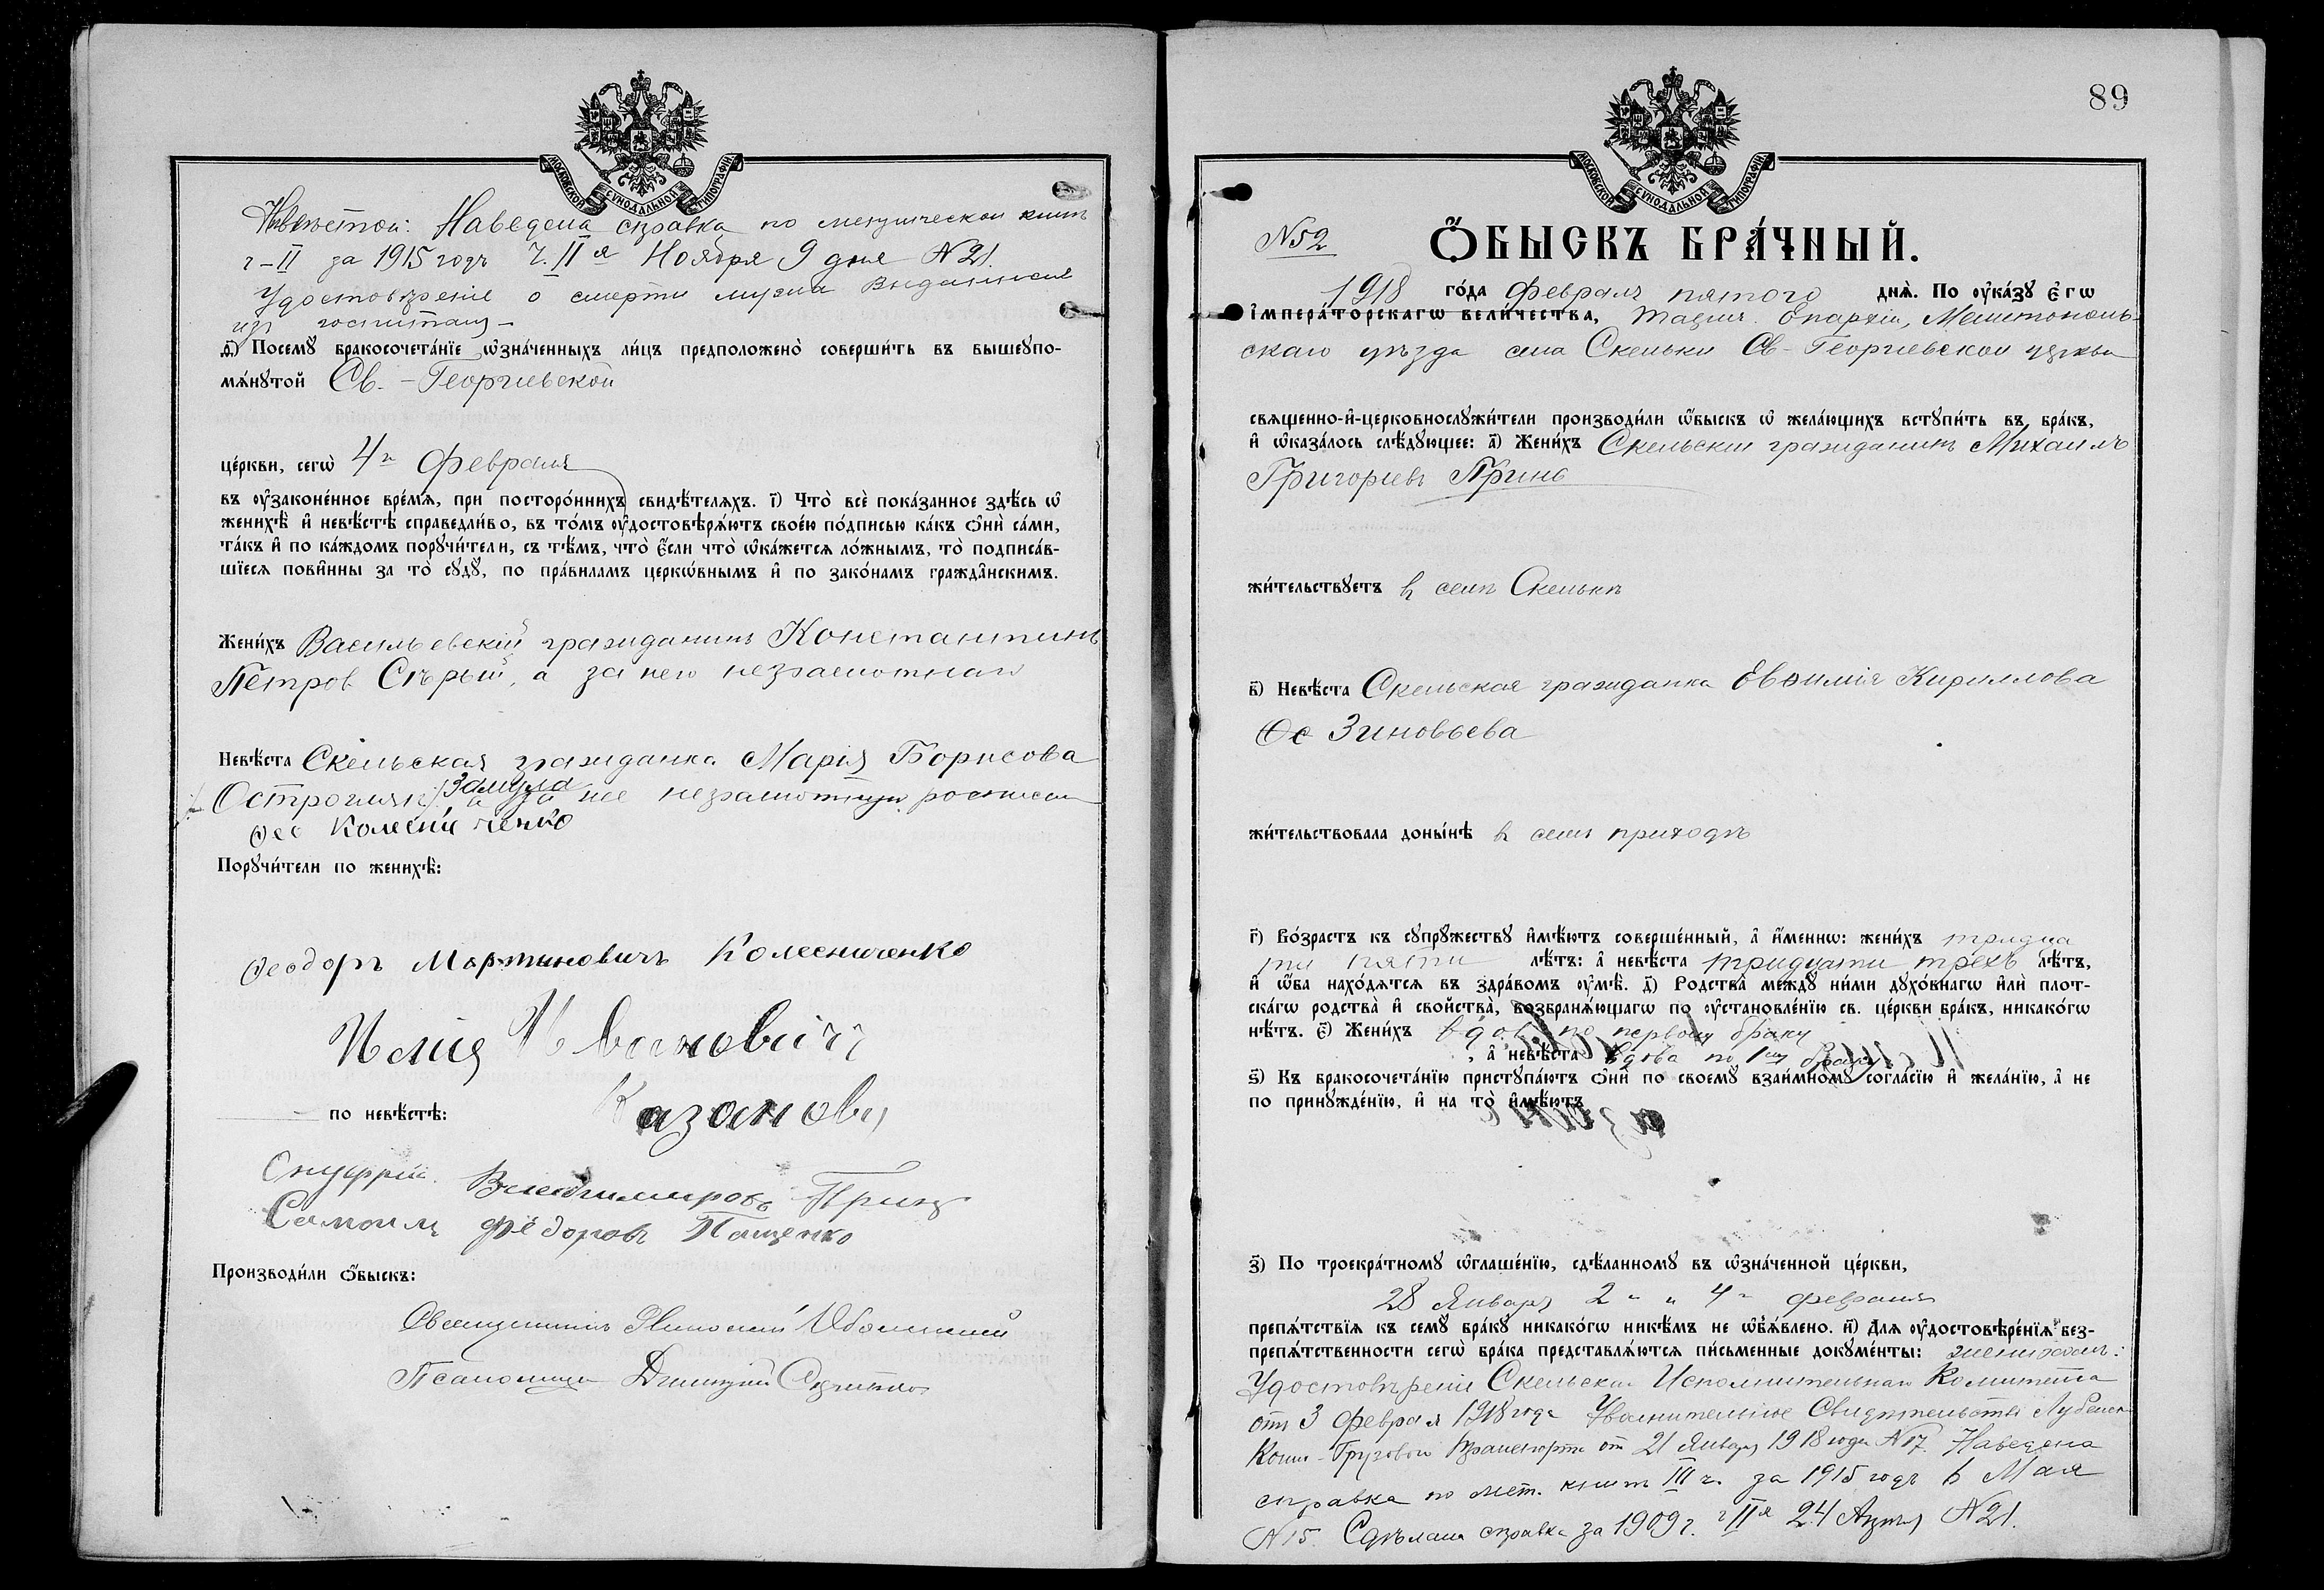 МОСКОВСКОЙ СѴНОДАЛЬНОЙ ТИПОГРАФІИ
Невѣстой: Наведена справка по метрической книгѣ
г-II за 1915 годъ Ч. II я Ноября 9 дня №21.
Удостовѣреніе о смерти мужа
изъ
д҃) Посемꙋ̀ бракосочета́нїе ѡ҆зна́ченныхъ ли́цъ предположено̀ соверши́ть въ вышеꙋпо-
мѧ́нꙋтой Св.-Георгіевской
це́ркви, сегѡ̀ 4го Февраля
въ ᲂу҆законе́нное вре́мѧ, при посторо́ннихъ свидѣ́телѧхъ. і҃) Что̀ всѐ пока́занное здѣ́сь ѡ҆
женихѣ̀ и҆ невѣ́стѣ справедли́во, въ то́мъ ᲂу҆достовѣрѧ́ютъ свое́ю по́дписью ка́къ ѻ҆нѝ са́ми,
та́къ и҆ по ка́ждомъ порꙋчи́тели, съ тѣ́мъ, что̀ є҆́сли что̀ ѡ҆ка́жетсѧ ло́жнымъ, то̀ подписа́в-
шїесѧ пови́нны за то̀ сꙋдꙋ̀, по пра́виламъ церкѡ́внымъ и҆ по зако́намъ гражда̑нскимъ.
Жени́хъ Васильевскій гражданинъ Константинъ
Петров Сѣрый, а за него неграмотнаго
Невѣ́ста Скельская гражданка Марія Борисова
Замула
а за нее неграмотную росписал
Ѳео Колесниченко
Порꙋчи́тели по женихѣ̀:
Ѳеодоръ Мартиновичъ Колесниченко
Илия Ивановичъ
Казановъ
по невѣ́стѣ:
Онуфрій Владимировъ Принь
Самоилъ Фёдоровъ Пащенко
Производи́ли ѻ҆́быскъ:
Священникъ
Псаломщикъ Димитрій
89
МОСКОВСКОЙ СѴНОДАЛЬНОЙ ТИПОГРАФІИ
№52
Ѻ҆́БЫСКЪ БРА́ЧНЫЙ.
1918 го́да Февраля пятого днѧ̀. По ᲂу҆ка́зꙋ є҆гѡ̀
і҆мпера́торскагѡ вели́чества, Таврич. Епархіи, Мелитополь-
скаго уѣзда села Скельки Св-Георгіевской церкви
свѧщенно-и҆-церковнослꙋжи́тели производи́ли ѡ҆́быскъ ѡ҆ жела́ющихъ встꙋпи́ть въ бра́къ,
и҆ ѡ҆каза́лось слѣ́дꙋющее: а҃) Жени́хъ Скельскій гражданинъ Михаилъ
Григорьевъ Принь
жи́тельствꙋетъ в селѣ Скелькѣ
в҃) Невѣ́ста Скельская гражданка Евѳимія Кириллова
Зиновьева
жи́тельствовала доны́нѣ в семъ приходѣ
г҃) Во́зрастъ къ сꙋпрꙋ́жествꙋ и҆мѣ́ютъ соверше́нный, а҆ и҆́меннѡ: жени́хъ тридца
ти пяти лѣ́тъ: а҆ невѣ́ста тридцати трехъ лѣ́тъ,
и҆ ѡ҆́ба нахо́дѧтсѧ въ здра́вомъ ᲂу҆мѣ̀. д҃) Родства̀ междꙋ̀ ни́ми дꙋхо́внагѡ и҆лѝ плот-
ска́гѡ родства̀ и҆ свойства̀, возбранѧ́ющагѡ по ᲂу҆становле́нїю св. це́ркви бра́къ, никако́гѡ
нѣ́тъ. є҃) Жени́хъ вдовъ по первому браку
, а҆ невѣ́ста вдова по 1му браку
ѕ҃) Къ бракосочета́нїю пристꙋпа́ютъ ѻ҆нѝ по своемꙋ̀ взаи́мномꙋ согла́сїю и҆ жела́нїю, а҆ не
по принꙋжде́нїю, и҆ на то̀ и҆мѣ́ютъ
з҃) По троекра́тномꙋ ѡ҆глаше́нїю, сдѣ́ланномꙋ въ ѡ҆зна́ченной це́ркви,
28 Января 2го и 4го февраля
препѧ́тствїѧ къ семꙋ̀ бра́кꙋ никако́гѡ никѣ́мъ не ѡ҆б̾ѧ́влено. и҃) Длѧ ᲂу҆достовѣре́нїѧ без-
препѧ́тственности сегѡ̀ бра́ка представлѧ́ютсѧ пи́сьменные докꙋме́нты: женихомъ:
Удостовѣреніе Скельскаго Исполнительнаго Комитета
отъ 3 февраля 1918 года Увольнительное Свидѣтельство
Транспорта от 21 Января 1918 года №17. Наведена
справка по мет. книгѣ III ч. за 1915 годъ 6 Мая
№15. Сдѣлана справка за 1909 г. ч II я 24 №21.